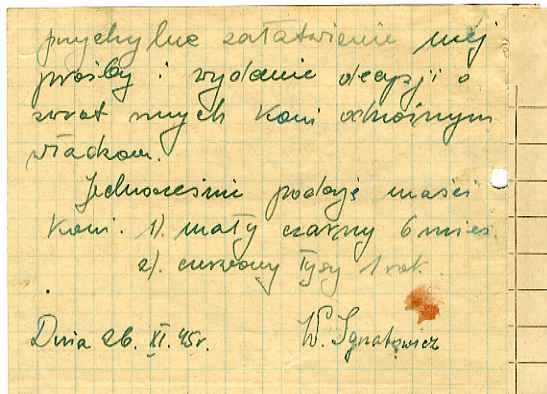 przychylne załatwienie mej
prośby i wydanie decyzji o
zwrot mych koni odnośnym
władzom.
Jednocześnie podaję maści
koni. 1). mały czarny 6 mies.
2). czerwony łysy 1 rok.
Dnia 26. XI. 45r. W. Ignatowicz